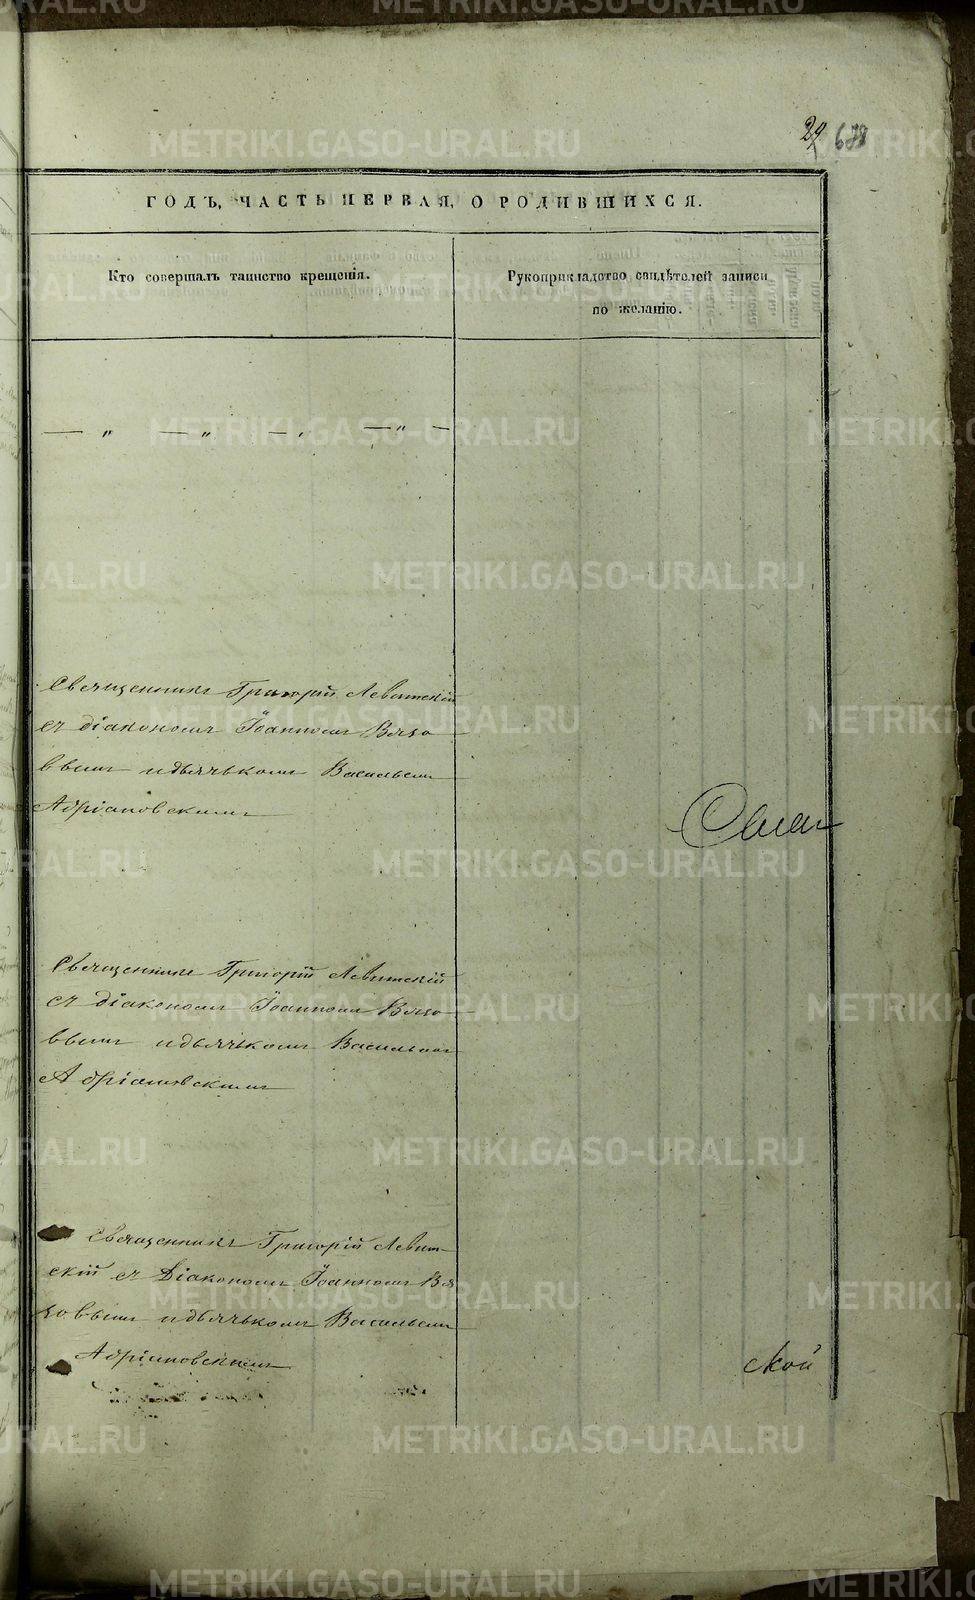 29 688
ГОДЪ, ЧАСТЬ ПЕРВАЯ, О РОДИВШИХСЯ.
Кто совершалъ таинство крещенія.
Рукоприкладство свидѣтелей записи
по желанію.
— „ — „ — „ — „ —
Священникъ Григорій Левитскій
съ діакономъ Іоанномъ Вязо
вымъ и дьячькомъ Васильемъ
Адріановскимъ
Священникъ Григорій Левитскій
съ діакономъ Іоанномъ Вязо
вымъ и дьячькомъ Васильемъ
Адріановскимъ
Священникъ Григорій Левит-
скій съ Діакономъ Іоанномъ Вя
зовымъ и дьячькомъ Васильемъ
Адріановскимъ
ской
METRIKI.GASO-URAL.RU